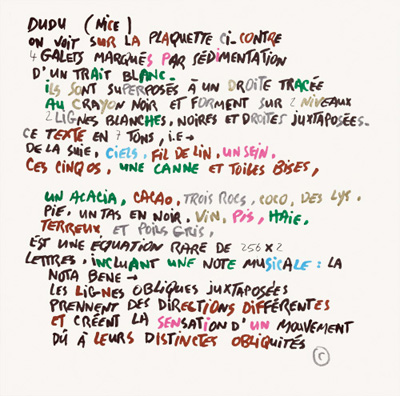 DUDU (NICE)
ON VOIT SUR LA PLAQUETTE CI-CONTRE
4 GALETS MARQUÉS PAR SÉDIMENTATION
D'UN TRAIT BLANC-
ILS SONT SUPERPOSÉS À UN DROITE TRACÉE
AU CRAYON NOIR ET FORMENT SUR 2 NIVEAUX
2 LIGNES BLANCHES, NOIRES ET DROITES JUXTAPOSÉES-
CE TEXTE EN 7 TONS, I.E →
DE LA SUIE, CIELS, FIL DE LIN, UN SEIN,
CES CINQ OS, UNE CANNE ET TOILES BISES,
UN ACACIA, CACAO, TROIS ROCS, COCO, DES LYS,
PIE, UN TAS EN NOIR, VIN, PIS, HAIE,
TERREUX ET POILS GRIS,
EST UNE EQUATION RARE DE 256 X 2
LETTRES, INCLUANT UNE NOTE MUSICALE : LA
NOTA BENE →
LES LIGNES OBLIQUES JUXTAPOSÉES
PRENNENT DES DIRECTIONS DIFFÉRENTES
ET CRÉENT LA SENSATION D'UN MOUVEMENT
DÛ À LEURS DISTINCTES OBLIQUITÉS
©